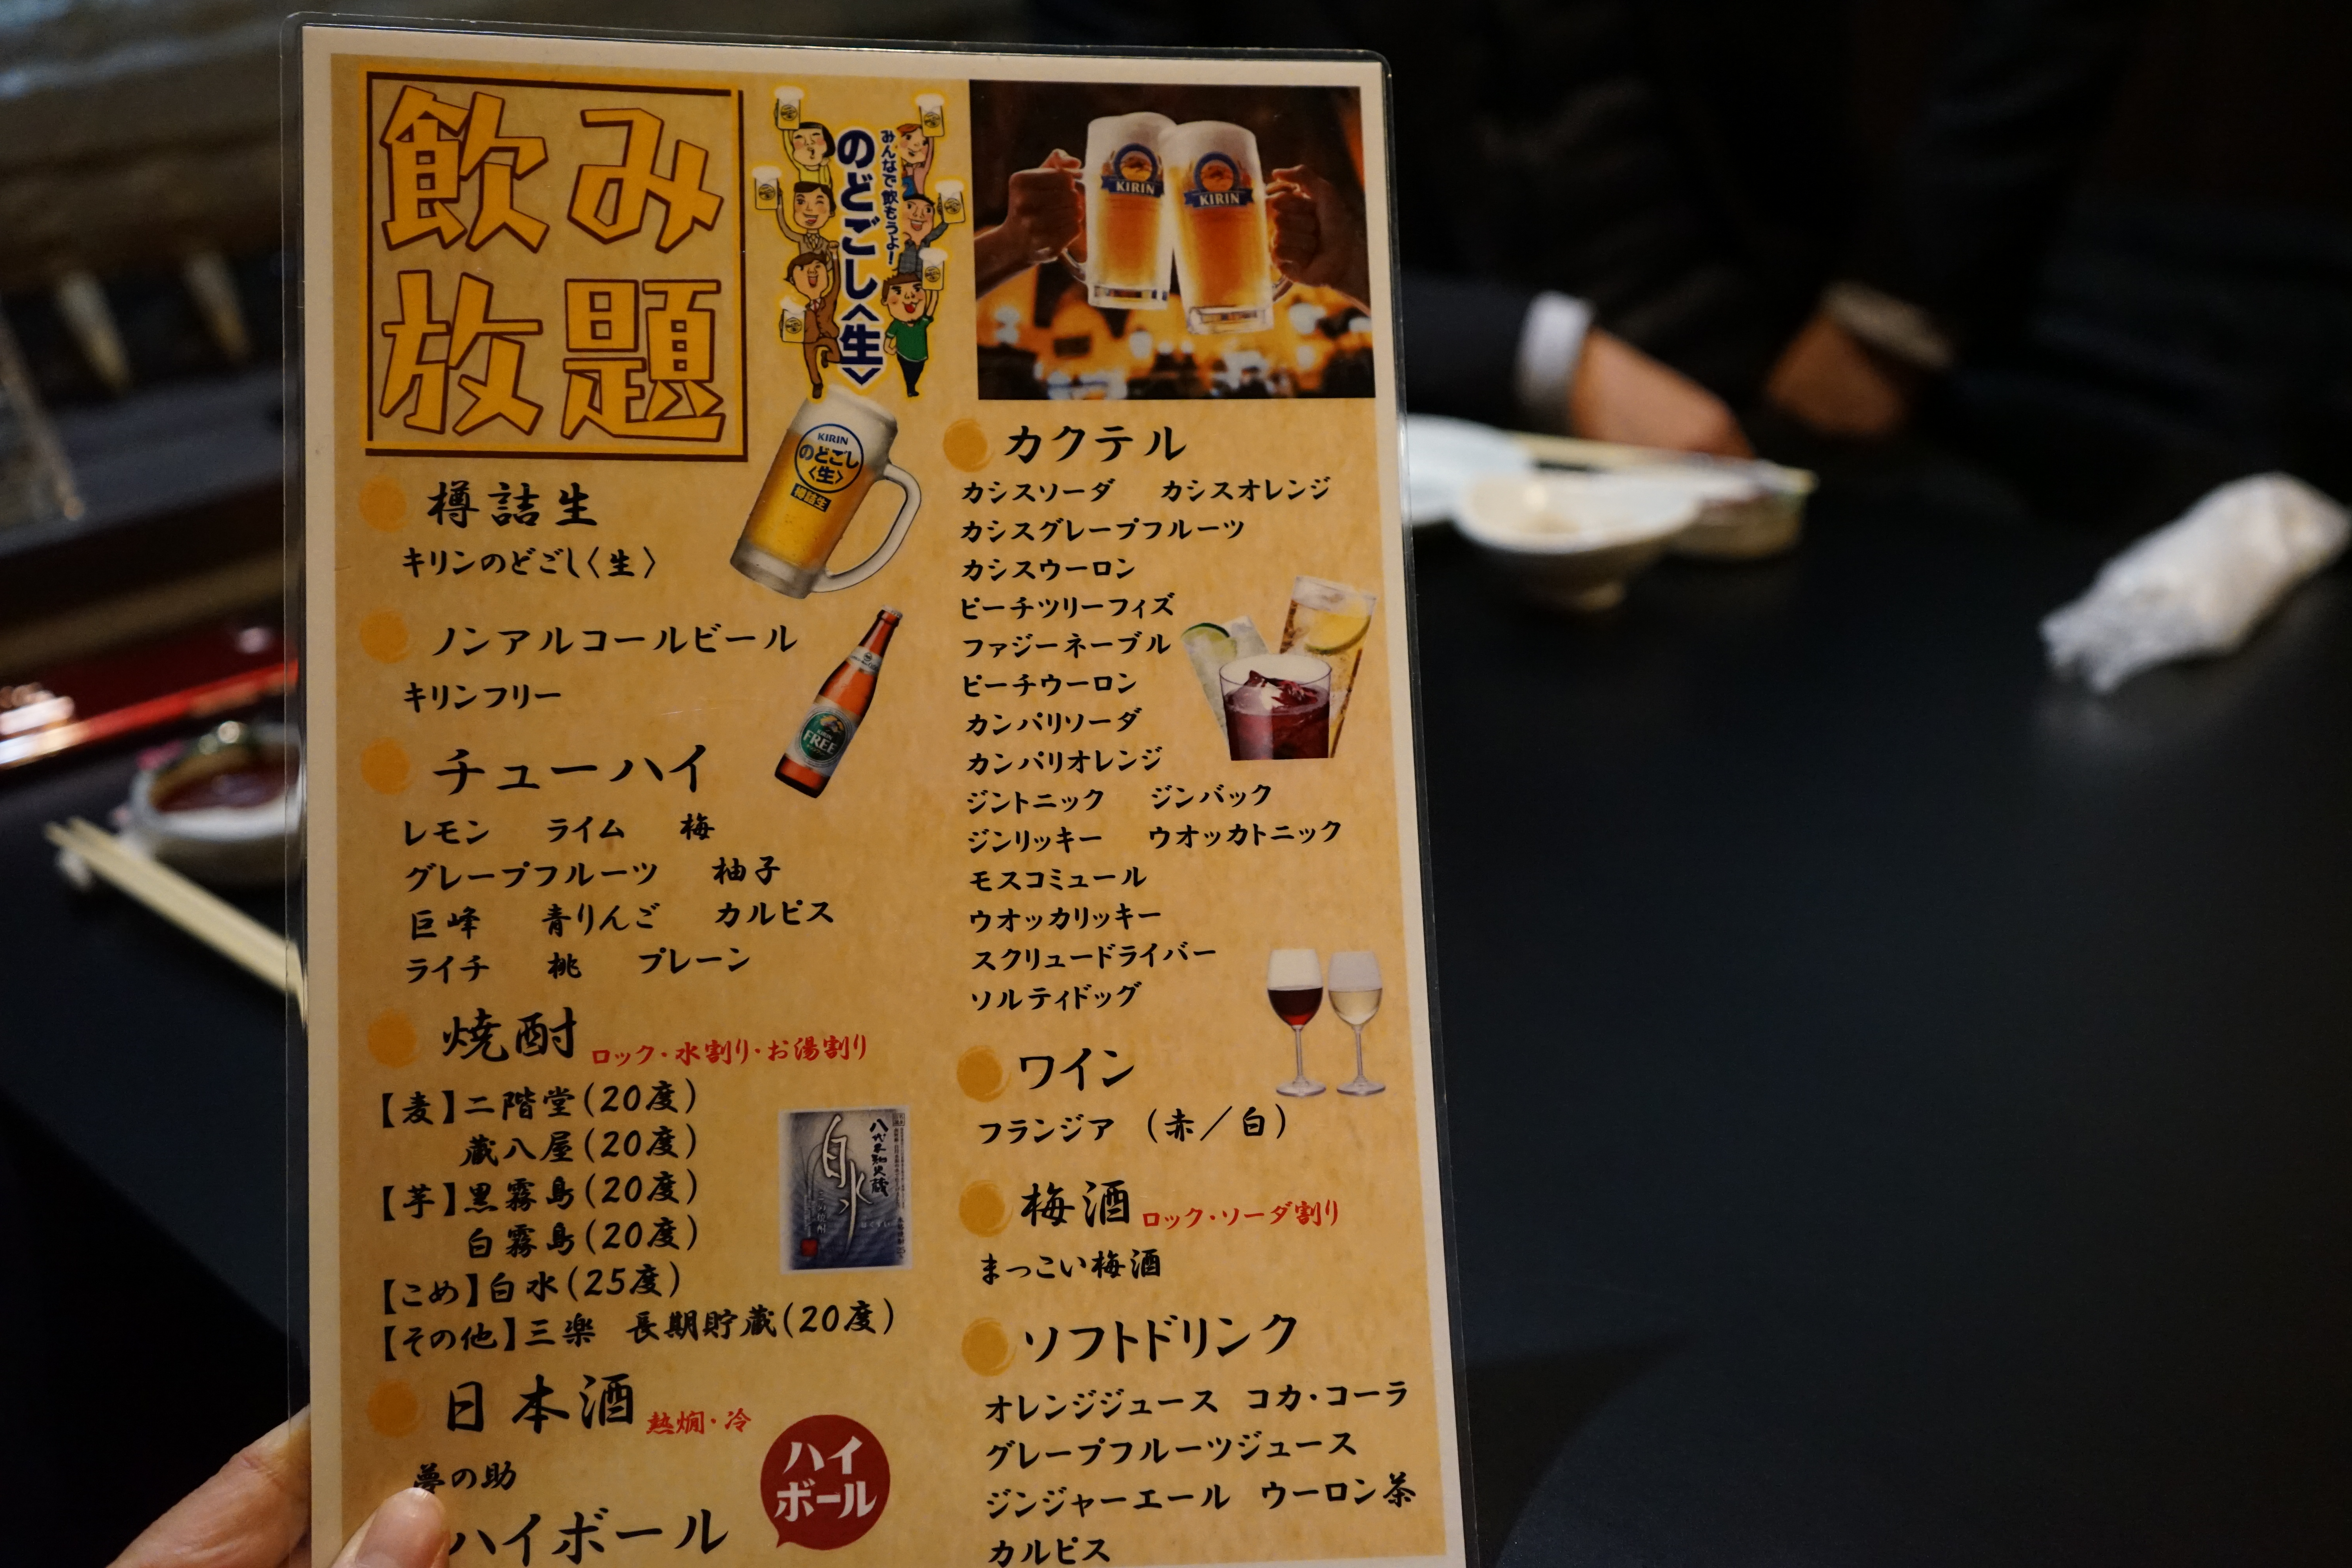 飲み
放題
みんなで飲もうよ!
のどごし〈生〉
KIRIN
KIRIN
KIRIN
のどごし
〈生〉
樽詰生
樽詰生
キリンのどごし〈生〉
ノンアルコールビール
キリンフリー
FREE
チューハイ
レモン ライム 梅
グレープフルーツ 柚子
巨峰 青りんご カルピス
ライチ 桃 プレーン
焼酎 ロック・水割り・お湯割り
【麦】二階堂(20度)
蔵八屋(20度)
【芋】黒霧島(20度)
白霧島(20度)
【こめ】白水(25度)
【その他】三楽 長期貯蔵(20度)
八代不知火蔵
白水
日本酒 熱燗・冷
夢の助
ハイ
ボール
ハイボール
カクテル
カシスソーダ カシスオレンジ
カシスグレープフルーツ
カシスウーロン
ピーチツリーフィズ
ファジーネーブル
ピーチウーロン
カンパリソーダ
カンパリオレンジ
ジントニック ジンバック
ジンリッキー ウオッカトニック
モスコミュール
ウオッカリッキー
スクリュードライバー
ソルティドッグ
ワイン
フランジア (赤/白)
梅酒 ロック・ソーダ割り
まっこい梅酒
ソフトドリンク
オレンジジュース コカ・コーラ
グレープフルーツジュース
ジンジャーエール ウーロン茶
カルピス